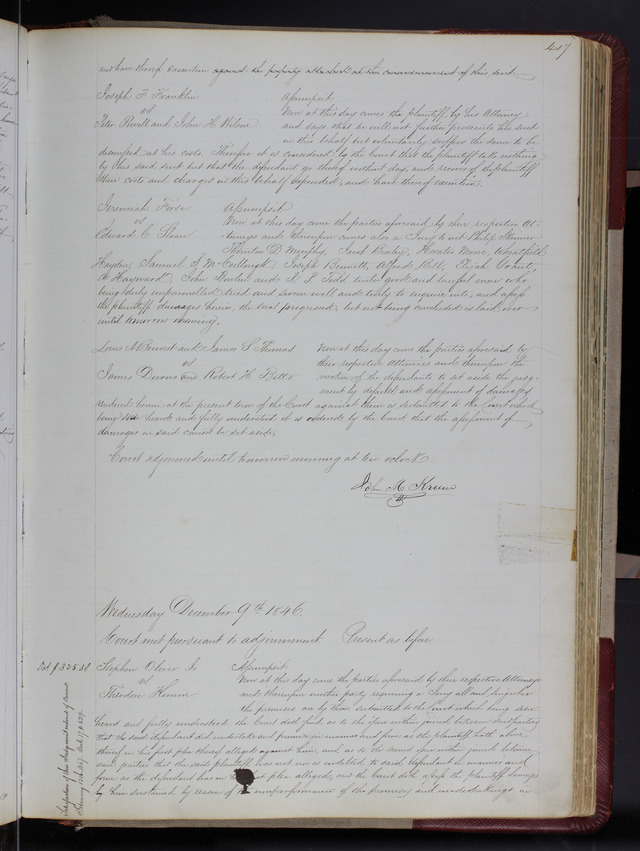 417
not have thereof execution against the property attached at the commencement of this suit
Joseph F Franklin Assumpsit
vs Now at this day comes the plaintiff by his Attorney
Peter Powell and John H. Wilson and says that he will not further prosecute his suit
in this behalf but voluntarily suffers the same to be
dismissed at his costs. Therefore it is considered by the Court that the plaintiff take nothing
by his said suit but that the defendant go thereof without day, and recover of the plaintiff
their costs and charges in this behalf expended, and have thereof execution.
Jeremiah Assumpsit
vs Now at this day come the parties aforesaid by their respective At-
Edward C Sloan torneys and thereupon comes also a Jury to wit
Thornton D. Murphy, Jacob Horatio
Hayden, Samuel S McCullough Joseph Bennett, Alfred Elijah
Hayward John and S. P. Todd twelve good and lawful men who
being duly empannelled tried and sworn well and truly to inquire into, and assess
the plaintiff damages herein, the trial progressed, but not being concluded is laid over
until tomorrow morning.
Louis A Benoist and James S Thomas Now at this day come the parties aforesaid by
vs their respective Attornies and thereupon the
James and Robert H. Betts motion of the defendants to set aside the judg-
ment by default and assessment of damages
rendered herein at the present term of the Court against them is submitted to the Court which
being heard and fully understood it is ordered by the Court that the assessment of
damages in said cause be set aside.
Court adjourned until tomorrow morning at ten oclock
John M. Krum
Wednesday December 9th 1846.
Court met pursuant to adjournment Present as before
Stephen Oliver Jr Assumpsit
vs Now at this day come the parties aforesaid by their respective Attorneys
Theodore and thereupon neither party requiring a Jury all and singular
the premises are by them submitted to the Court which being seen
heard and fully understood the Court doth find as to the issue within joined between said parties
that the said defendant did undertake and promise in manner and form as the plaintiff hath above
thereof in his first plea thereof alleged against him, and as to the second issue within joined between
said parties that the said plaintiff was not nor is indebted to said defendant in manner and
form as the defendant has in plea alleged, and the Court doth assess the plaintiff damages
by him sustained by reason of the nonperformance of the promises and undertakings in
Satisfaction of this Judgment entered of record
February 1847